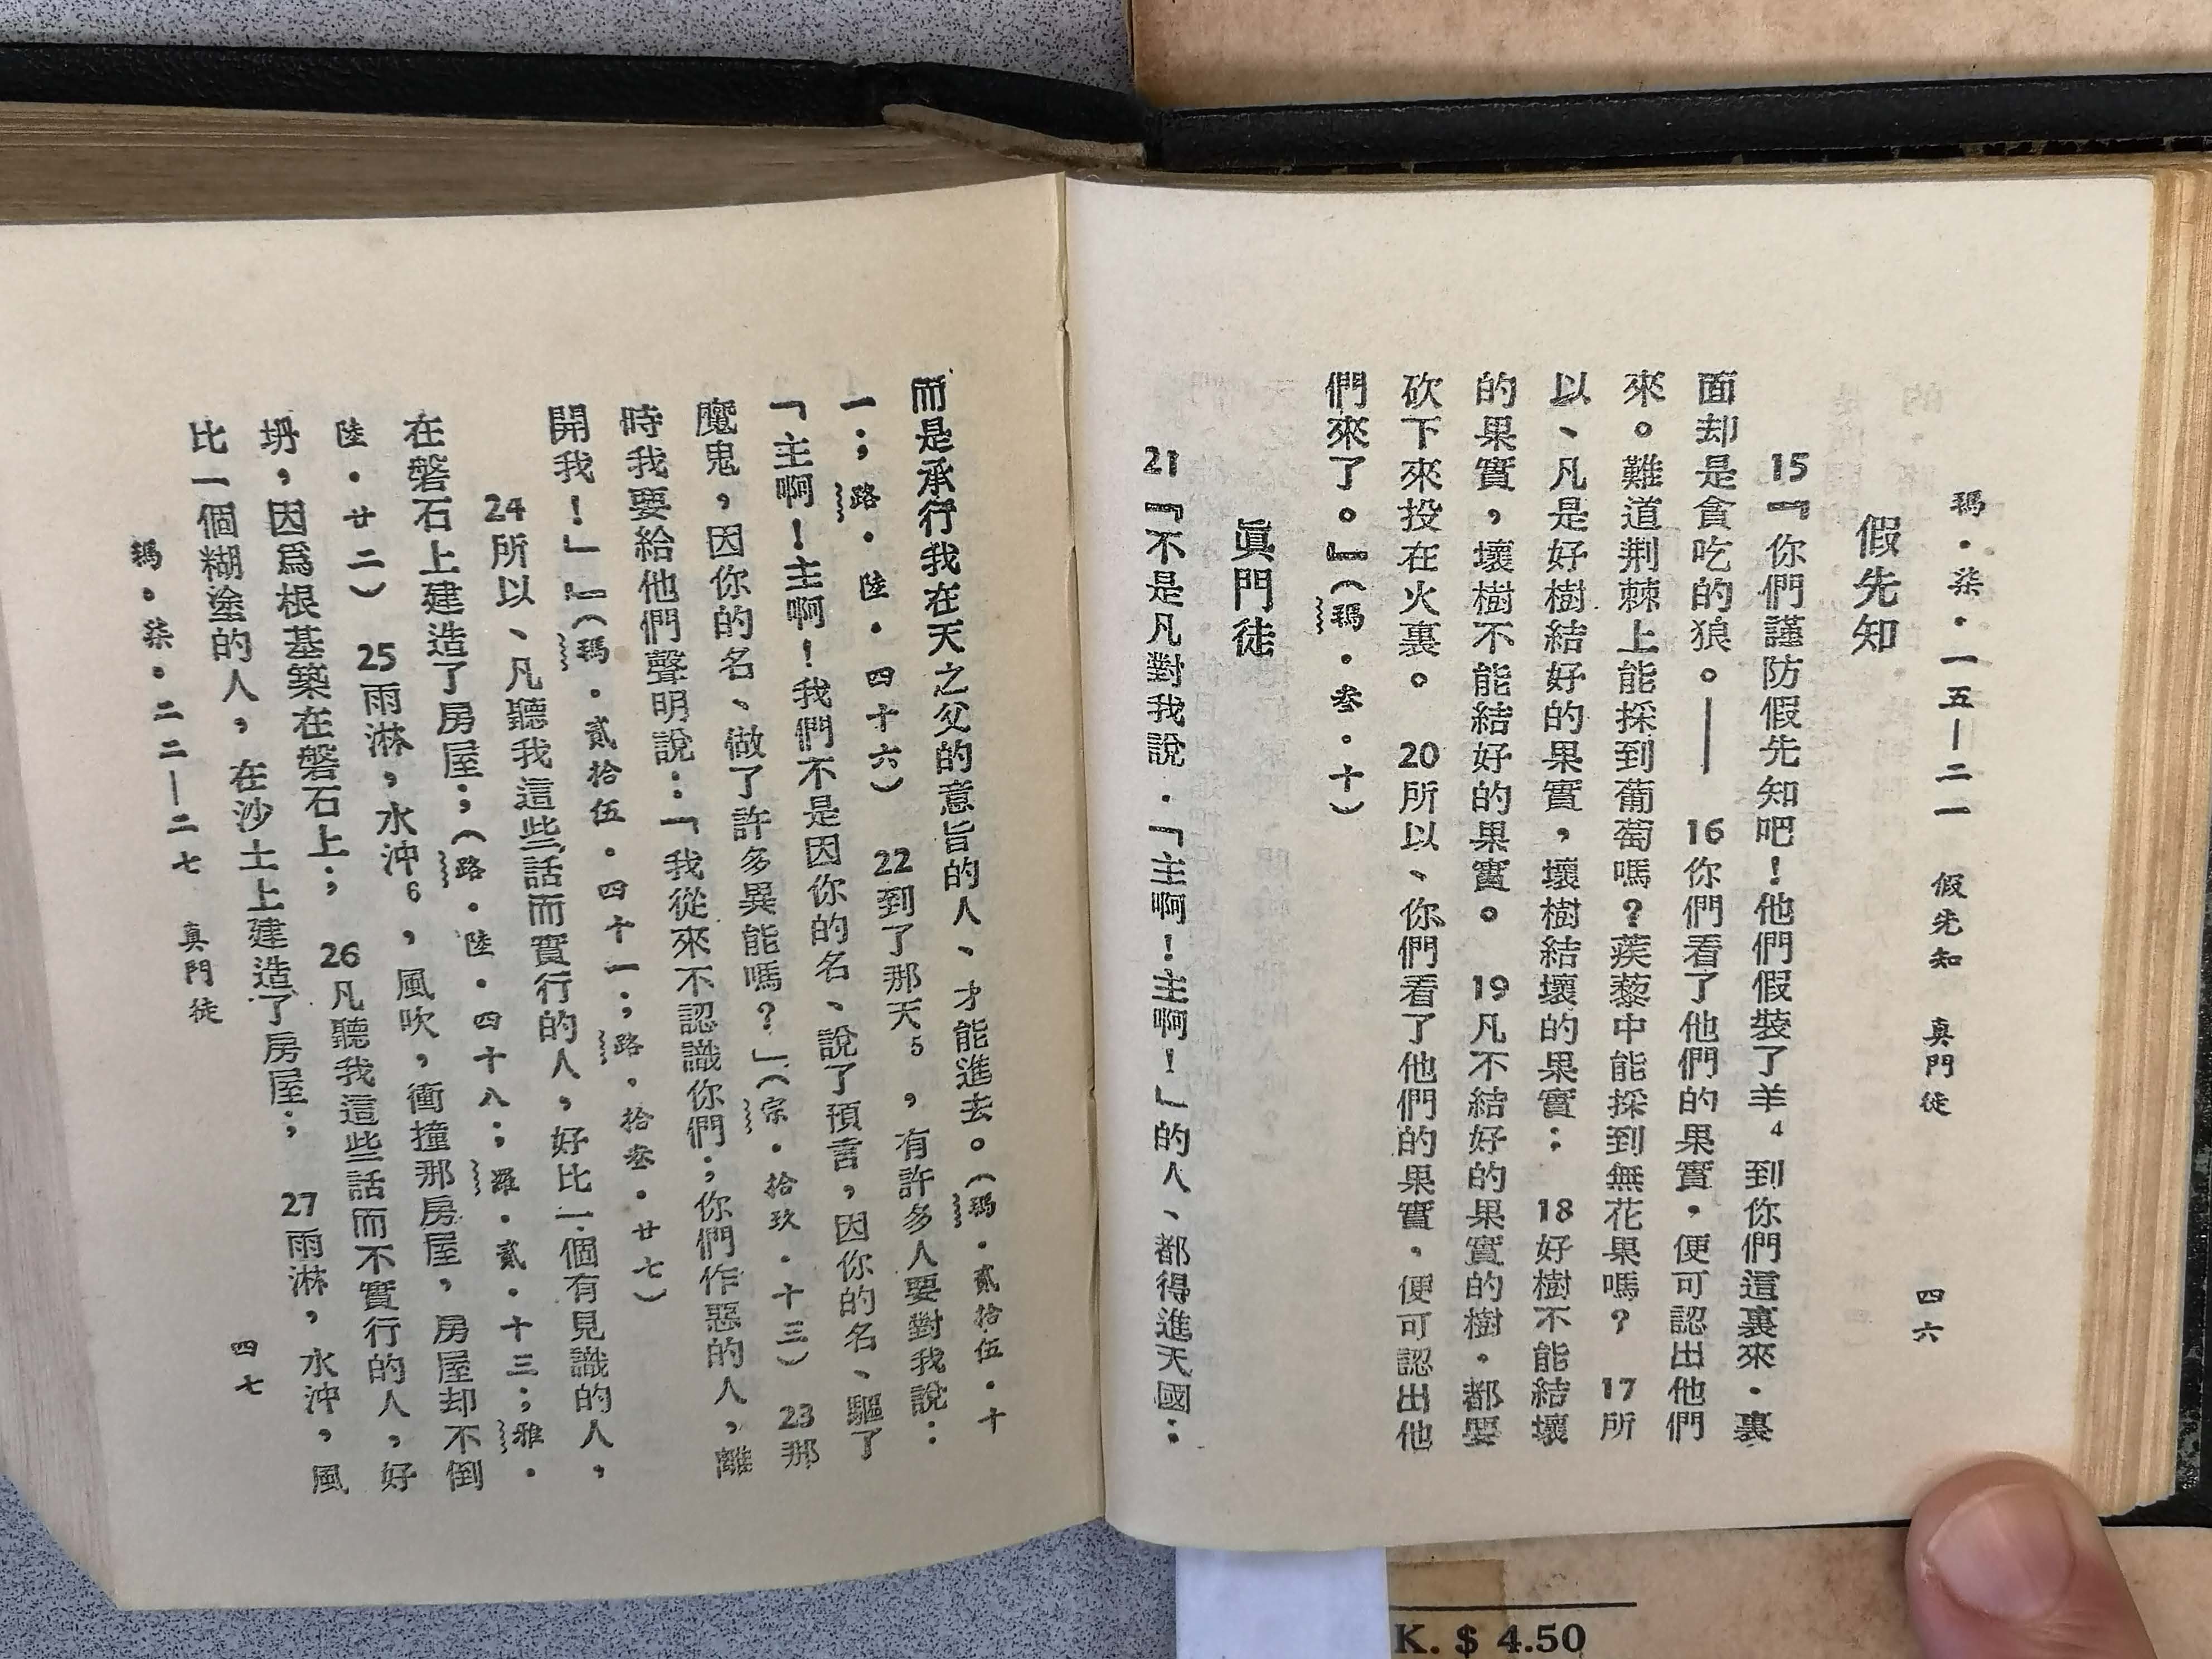 瑪．柒．一五—二一　假先知　真門徒　四六
假先知
15「你們謹防假先知吧！他們假裝了羊4到你們這裏來．裏
面却是貪吃的狼。——　16你們看了他們的果實，便可認出他們
來。難道荆棘上能採到葡萄嗎？蒺藜中能採到無花果嗎？　17所
以、凡是好樹結好的果實，壞樹結壞的果實：　18好樹不能結壞
的果實，壞樹不能結好的果實。　19凡不結好的果實的樹．都要
砍下來投在火裏。　20所以、你們看了他們的果實，便可認出他
們來了。」（瑪．叁．十）
眞門徒
21「不是凡對我說．「主啊！主啊！」的人、都得進天國：
而是承行我在天之父的意旨的人、才能進去。（瑪．貳拾伍．十
一；路．陸．四十六）　22到了那天5，有許多人要對我說：
「主啊！主啊！我們不是因你的名、說了預言，因你的名、驅了
魔鬼，因你的名、做了許多異能嗎？」（宗．拾玖．十三）　23那
時我要給他們聲明說：「我從來不認識你們；你們作惡的人，離
開我！」」（瑪．貳拾伍．四十一；路．拾叁．廿七）
24所以、凡聽我這些話而實行的人，好比一個有見識的人，
在磐石上建造了房屋；（路．陸．四十八；羅．貳．十三；雅．
陸．廿二）　25雨淋，水沖6，風吹，衝撞那房屋，房屋却不倒
坍，因爲根基築在磐石上；　26凡聽我這些話而不實行的人，好
比一個糊塗的人，在沙土上建造了房屋；　27雨淋，水沖，風
瑪．柒．二二—二七　真門徒　四七
K. $ 4.50